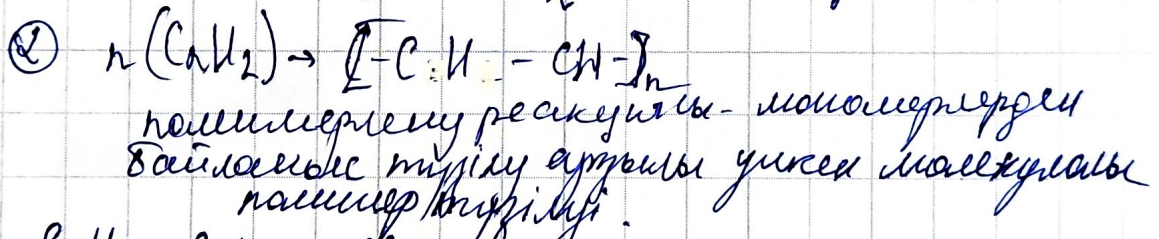 ② n(C₂H₂) → [-C H - CH-]ₙ
полимерлену реакциясы - мономерлерден
байланыс түзілу арқылы үлкен молекулалы
полимер түзілуі.